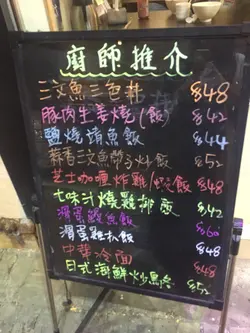 廚師推介
三文魚三色丼 $48
豚肉生姜燒(飯) $42
鹽燒鯖魚飯 $44
蒜香三文魚飯 $52
芝士咖喱炸雞/飯 $48
七味汁燒雞排飯 $42
滑蛋鰻魚飯 $60
滑蛋雞扒飯 $48
中華冷面 $48
日式海鮮炒烏冬 $52